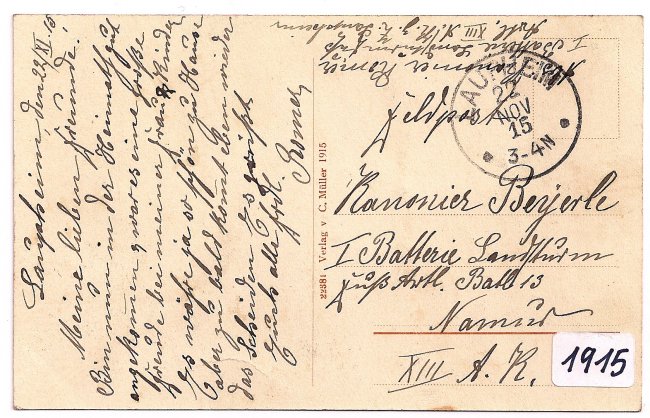 Laupheim, den 22/XI. 15
Meine lieben Freunde!
Bin nun in der Heimath gut
angekommen, war es eine große
Freude bei meiner Frau & Kinder
Es wäre ja so schön zu Hause
aber zu bald kommt eben wieder
das Scheiden. Es grüßt
Euch alle frdl.
Romer
22381 Verlag v C. Müller 1915
Kanonier Romer
I Batterie Landsturm Fuß
Artl. XIII A.K. z. Z. Laupheim
LAUPHEIM
22
NOV
15
3-4N
Feldpost
Kanonier Beyerle
I Batterie Landsturm
Fuß Artl. Batl 13
Namur
XIII A. K.
1915